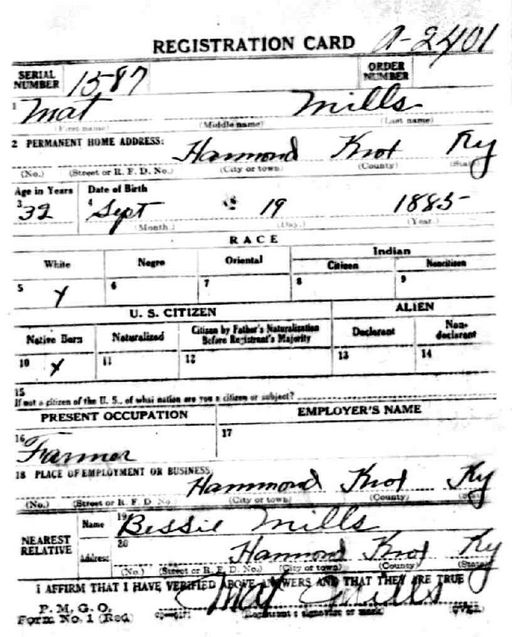 REGISTRATION CARD A-2401
SERIAL NUMBER 1587 ORDER NUMBER
1 Mat Mills
(First name) (Middle name) (Last name)
2 PERMANENT HOME ADDRESS: Hammond Knox Ky
(No.) (Street or R. F. D. No.) (City or town) (County) (State)
Age in Years Date of Birth
3 32 4 Sept 19 1885
(Month.) (Day.) (Year.)
RACE
White Negro Oriental Indian
Citizen Noncitizen
5 X 6 7 8 9
U. S. CITIZEN ALIEN
Native Born Naturalized Citizen by Father's Naturalization Before Registrant's Majority Declarant Non-declarant
10 X 11 12 13 14
15
If not a citizen of the U. S., of what nation are you a citizen or subject?
PRESENT OCCUPATION EMPLOYER'S NAME
16 Farmer 17
18 PLACE OF EMPLOYMENT OR BUSINESS Hammond Knox Ky
(No.) (Street or R. F. D. No.) (City or town) (County) (State)
NEAREST RELATIVE Name 19 Bessie Mills
Address: 20 Hammond Knox Ky
(No.) (Street or R. F. D. No.) (City or town) (County) (State)
I AFFIRM THAT I HAVE VERIFIED ABOVE ANSWERS AND THAT THEY ARE TRUE
P. M. G. O.
Form No. 1 (Red) Mat Mills
(Registrant's signature or mark)